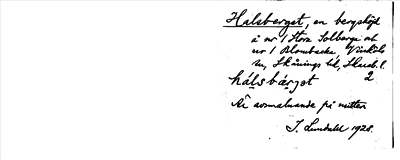 Halsberget, en bergshöjd
å nr 1 Stora Solberga och
nr 1 Blombacka, Vinköls
sn, Skånings hd, Skarab. l.
hálsbárjət 2
Är avsmalnande på mitten
J. Lundahl 1928.